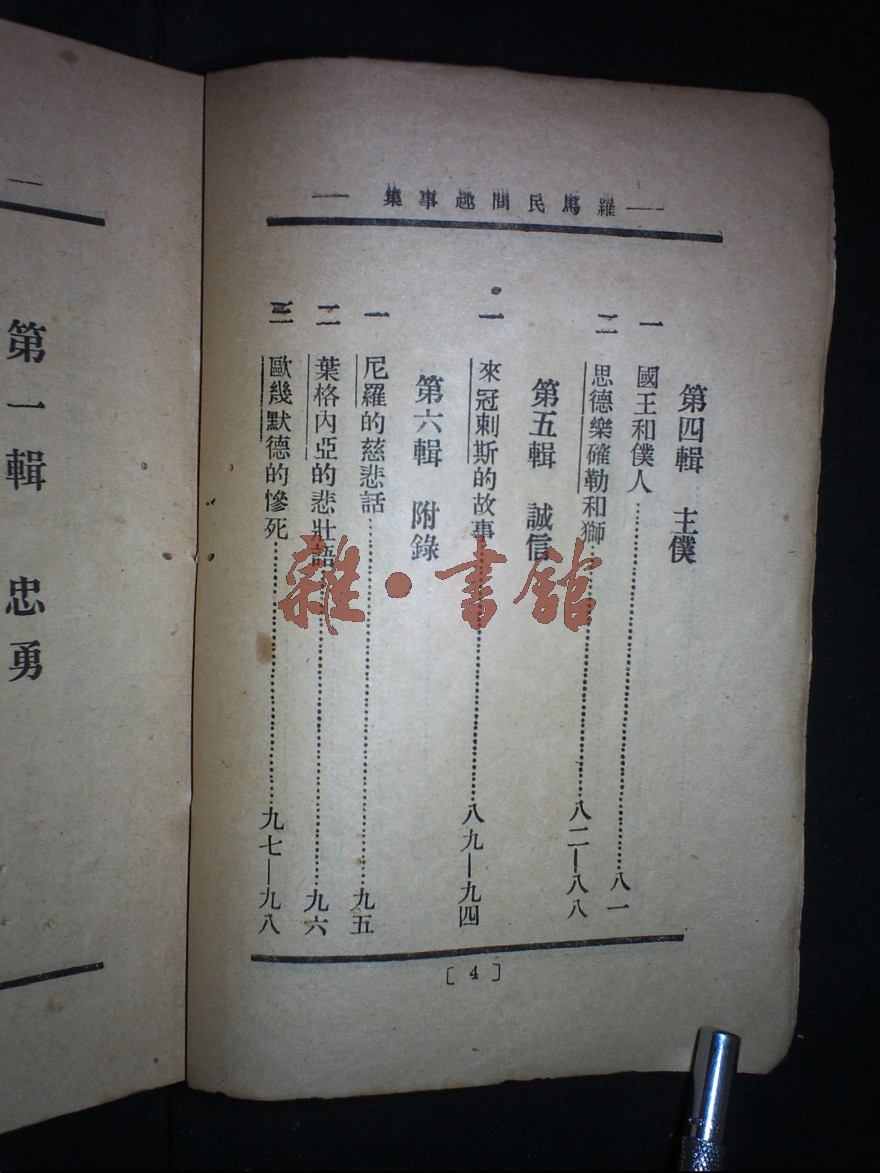 —集事趣間民馬羅—
第四輯　主僕
一　國王和僕人……八一
二　思德樂確勒和獅……八二—八八
第五輯　誠信
一　來冠刺斯的故事……八九—九四
第六輯　附錄
一　尼羅的慈悲話……九五
二　葉格內亞的悲壯語……九六
三　歐幾默德的慘死……九七—九八
[4]
第一輯　忠勇
雜·書館